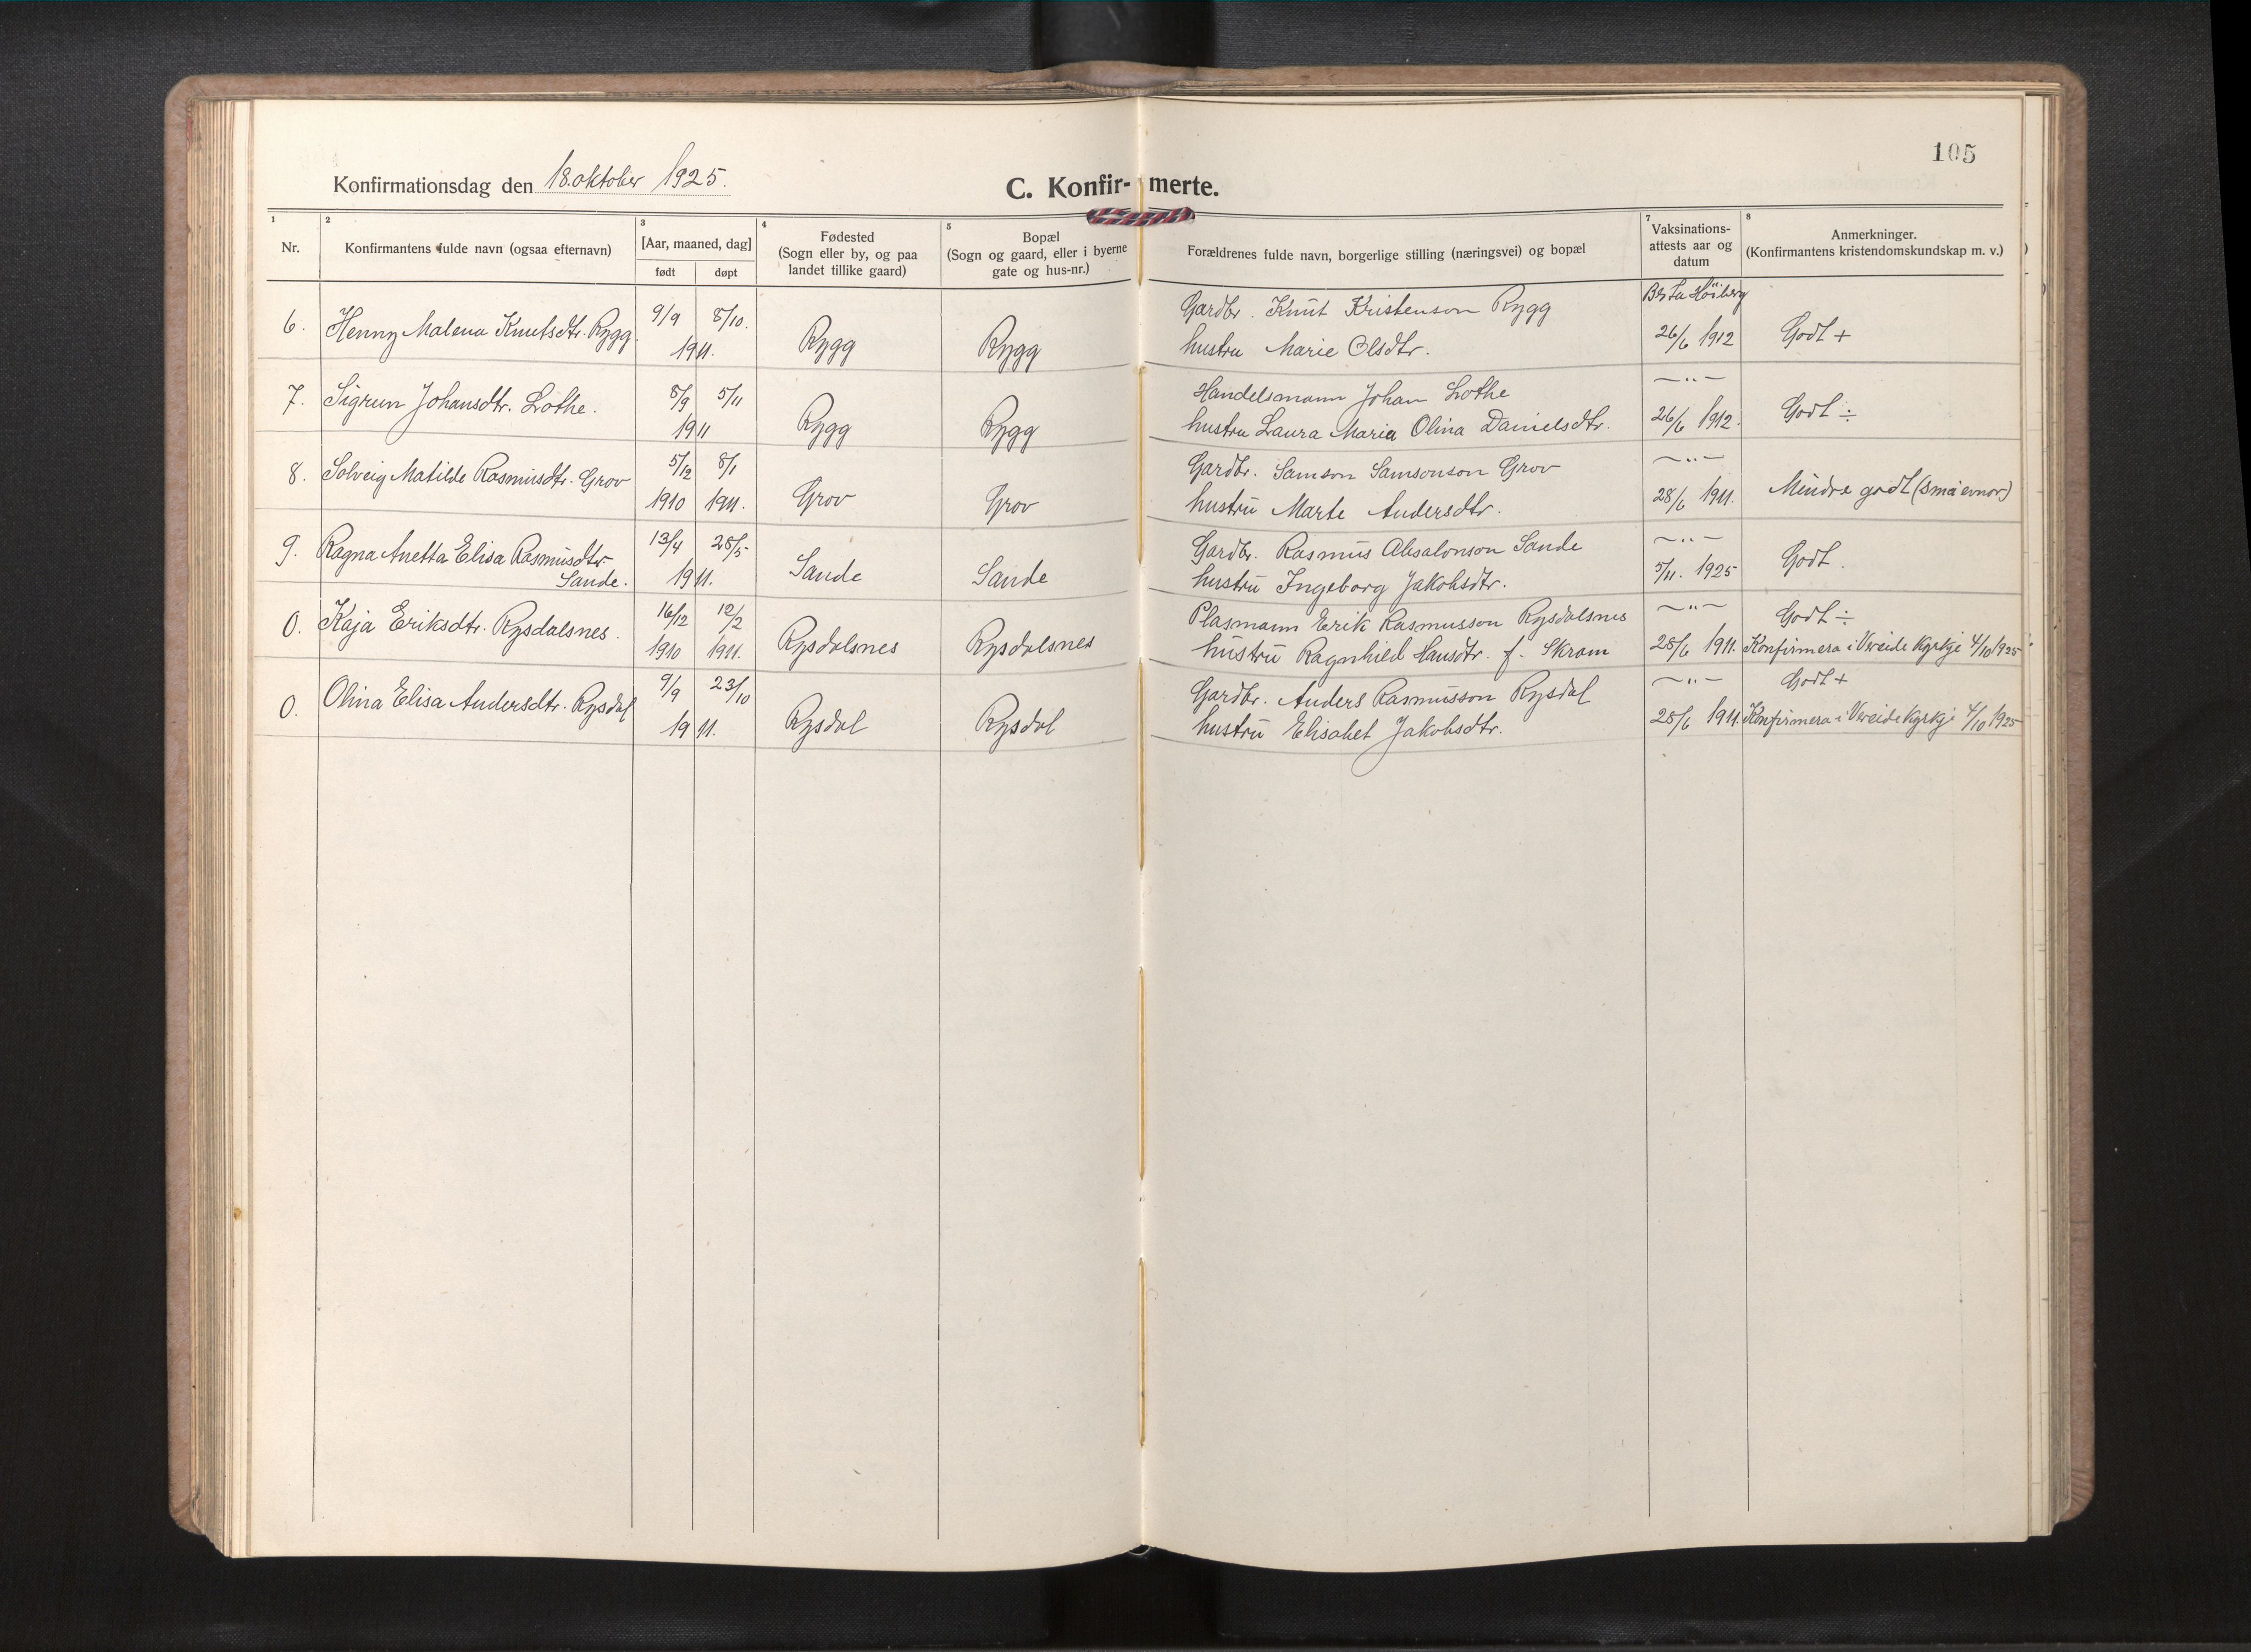 105
Konfirmationsdag den 18. oktober 1925.
C. Konfir- merte.
1 2 3 4 5 7 8
Nr.
Konfirmantens fulde navn (ogsaa efternavn)
[Aar, maaned, dag]
født døpt
Fødested
(Sogn eller by, og paa
landet tillike gaard)
Bopæl
(Sogn og gaard, eller i byerne
gate og hus-nr.)
Forældrenes fulde navn, borgerlige stilling (næringsvei) og bopæl
Vaksinations-
attests aar og
datum
Anmerkninger.
(Konfirmantens kristendomskundskap m. v.)
6. Henny Malena Knutsdtr. Rygg. 9/9 8/10. Gardbr. Knut Kristenson Rygg Høiberg
1911. Rygg Rygg hustru Marie Olsdtr. 26/6 1912 Godt +
7. Sigrun Johansdtr. Lothe. 8/9 5/11 Handelsmann Johan Lothe —"—
1911 Rygg Rygg hustru Laura Maria Olina Danielsdtr. 26/6 1912. Godt ÷
8. Solveig Matilde Rasmusdtr. Grov 5/12 8/1 Gardbr. Samson Samsonson Grov —"—
1910 1911. Grov Grov hustru Marte Andersdtr. 28/6 1911. Mindre godt (små evnor)
9. Ragna Anetta Elisa Rasmusdtr. 13/4 28/5 Gardbr. Rasmus Absalonson Sande —"—
Sande. 1911. Sande Sande hustru Ingeborg Jakobsdtr. 5/11. 1925 Godt.
0. Kaja Eriksdtr. Rysdalsnes. 16/12 12/2 Plasmann Erik Rasmusson Rysdalsnes —"— Godt ÷
1910 1911. Rysdalsnes Rysdalsnes hustru Ragnhild Hansdtr. f. Skram 28/6 1911. Konfirmera i Vereide kyrkje 4/10 1925
0. Olina Elisa Andersdtr. Rysdal 9/9 23/10 Gardbr. Anders Rasmusson Rysdal —"— Godt +
1911. Rysdal Rysdal hustru Elisabet Jakobsdtr. 28/6 1911. Konfirmera i Vereide kyrkje 4/10 1925